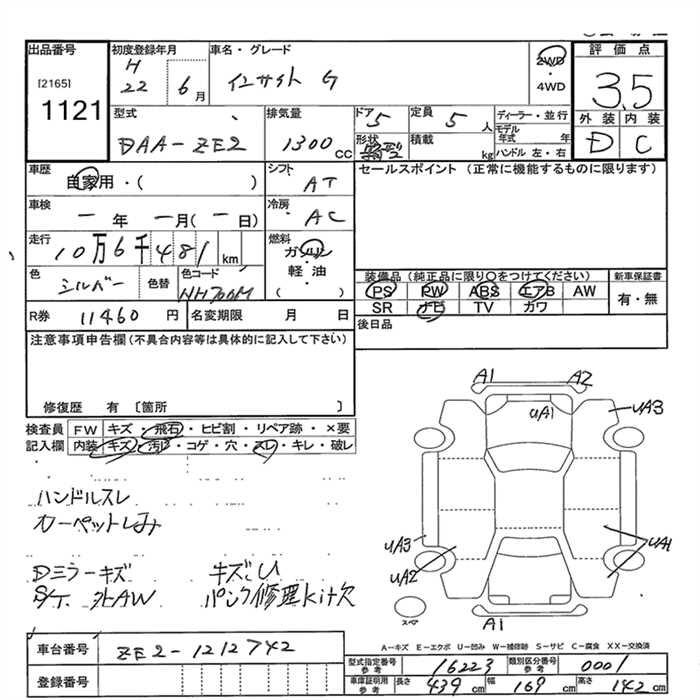 出品番号
[2165]
1121
初度登録年月
H
22 6月
車名・グレード
インサイト G
2WD
・
4WD
評価点
3.5
外装 内装
D C
型式
DAA-ZE2
排気量
1300 CC
ドア 5
形状
定員
5 人
積載
kg
ディーラー・並行
モデル年式 年
ハンドル 左・右
車歴
自家用・( )
シフト
AT
セールスポイント (正常に機能するものに限ります)
車検
ー年 ー月(ー日)
冷房
AC
走行
10万6千481 km
燃料
ガソリン
軽・油
( )
色
シルバー
色替
色コード
NH700M
装備品(純正品に限り○をつけてください)
PS PW ABS エアB AW
SR ナビ TV カワ
新車保証書
有・無
R券 11460 円
名変期限 月 日
後日品
注意事項申告欄(不具合内容等は具体的に記入して下さい)
修復歴 有 〔箇所 〕
検査員記入欄
FW キズ・飛石・ヒビ割・リペア跡・×要
内装 キズ・汚れ・コゲ・穴・スレ・キレ・破レ
ハンドルスレ
カーペットしみ
Dミラーキズ キズじU
S/T. 外AW パンク修理kit欠
A1 A2
uA1 uA3
uA3 uA1
uA2
スペア
A1
A-キズ E-エクボ U-凹み W-補修跡 S-サビ C-腐食 XX-交換済
車台番号 ZE2-1212742
登録番号
型式指定番号参考 16223 類別区分番号参考 0001
車庫証明用参考 長さ 439 cm 幅 169 cm 高さ 142 cm